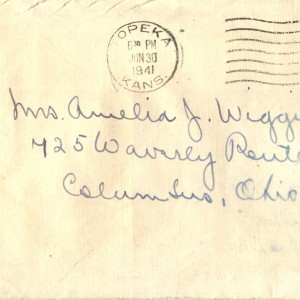 OPEKA
6:30 PM
JUN 30
1941
KANS.
Mrs. Amelia J. Wiggi
725 Waverly Route
Columbus, Ohio